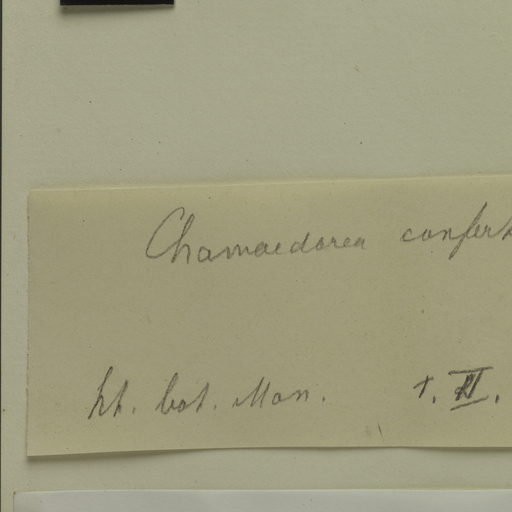 Chamaedorea confert
ht. bot. Mon. t. II.